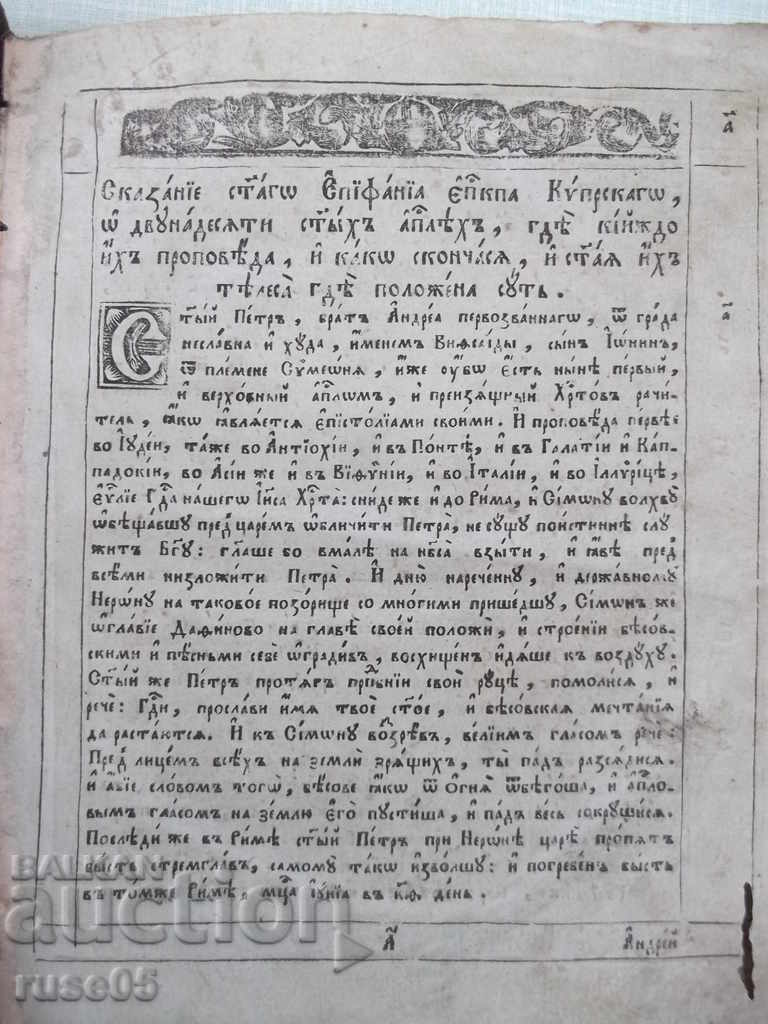 а҃
Сказа́нїе ст҃а́гѡ Є҆пїфа́нїа є҆п҃кпа Ку́прскагѡ,
ѡ҆ двунадесяти ст҃ы́хъ а҆п҃лѣхъ, гдѣ̀ кі́йждо
и҆́хъ проповѣ́да, и҆ ка́кѡ сконча́ся, и҆ ст҃а́я и҆́хъ
тѣлеса̀ гдѣ̀ положе́на су́ть.
а҃
Ст҃ы́й Пе́тръ, бра́тъ А҆ндре́а первозва́ннагѡ, ѿ гра́да
несла́вна и҆ ху́да, и҆́менемъ Виѳсаі́ды, сы́нъ І҆ѡ́нинъ,
ѿ пле́мене Сѷмеѡ́ня, и҆́же ѹ҆́бѡ є҆́сть ны́нѣ пе́рвый,
и҆ верхо́вный а҆п҃лѡмъ, и҆ преизя́щный Хр҃то́въ рачи́
тель, ꙗ҆́кѡ ꙗ҆вля́ется є҆пїсто́лїами свои́ми. И҆ проповѣ́да пе́рвѣе
во І҆уде́и, та́же во А҆нтїохі́и, и҆ въ По́нтѣ, и҆ въ Гала́тїи и҆ Кап
падокі́и, во А҆сі́и же и҆ въ Виѳѷні́и, и҆ во І҆та́лїи, и҆ во І҆ллѷрі́цѣ,
є҆ѵ҃лїе Гд҃а на́шегѡ І҆и҃са Хр҃та̀: сни́де же и҆ до Ри́ма, и҆ Сі́мѡну волхву̀
ѡ҆бѣща́вшу пред̾ царе́мъ ѡ҆бличи́ти Петра̀, не су́щу пои́стиннѣ слу
жи́тъ Бг҃у: гл҃аше бо вма́лѣ на нб҃са̀ взы́ти, и҆ ꙗ҆́вѣ пред̾
всѣ́ми низложи́ти Петра̀. И҆ дню̀ нарече́нну, и҆ держа́вному
Неро́ну на таково́е позо́рище со мно́гими прише́дшу, Сі́мѡнъ же
ѡ҆гла́вїе Да́фїново на главѣ̀ свое́й положѝ, и҆ строе́нїи бѣсо́в
скими и҆ пѣ́сньми себѐ ѡ҆гради́въ, восхище́нъ и҆дя́ше къ во́здуху.
Ст҃ы́й же Пе́тръ протя́гъ прп҃о́бнїи свои̑ ру́цѣ, помоли́ся, и҆
речѐ: Гд҃и, просла́ви и҆́мя твоѐ ст҃о́е, и҆ бѣсо́вская мечта́нїя
да раста́ются. И҆ къ Сі́мѡну воззрѣ́въ, ве́лїимъ гла́сомъ речѐ:
Пред̾ лице́мъ всѣ́хъ на землѝ зря́щихъ, ты̀ па́дъ разся́дися.
И҆ а҆́бїе сло́вомъ тогѡ̀, бѣ́сове ꙗ҆́кѡ ѿ ѻ҆гня̀ ѿбѣго́ша, и҆ а҆п҃ло
вымъ гла́сомъ на зе́млю є҆го̀ пусти́ша, и҆ па́дъ ве́сь сокруши́ся.
Послѣди́ же въ Ри́мѣ ст҃ы́й Пе́тръ при Неро́нѣ царѣ̀ пропя́тъ
бы́сть стремгла́въ, самому̀ та́кѡ изво́лшу: и҆ погребе́нъ бы́сть
въ то́мже Ри́мѣ, мц҃а і҆у́нїа въ к҃ѳ, де́нь.
а҃
А҆ндре́й
BALKAN
auction
ruse05